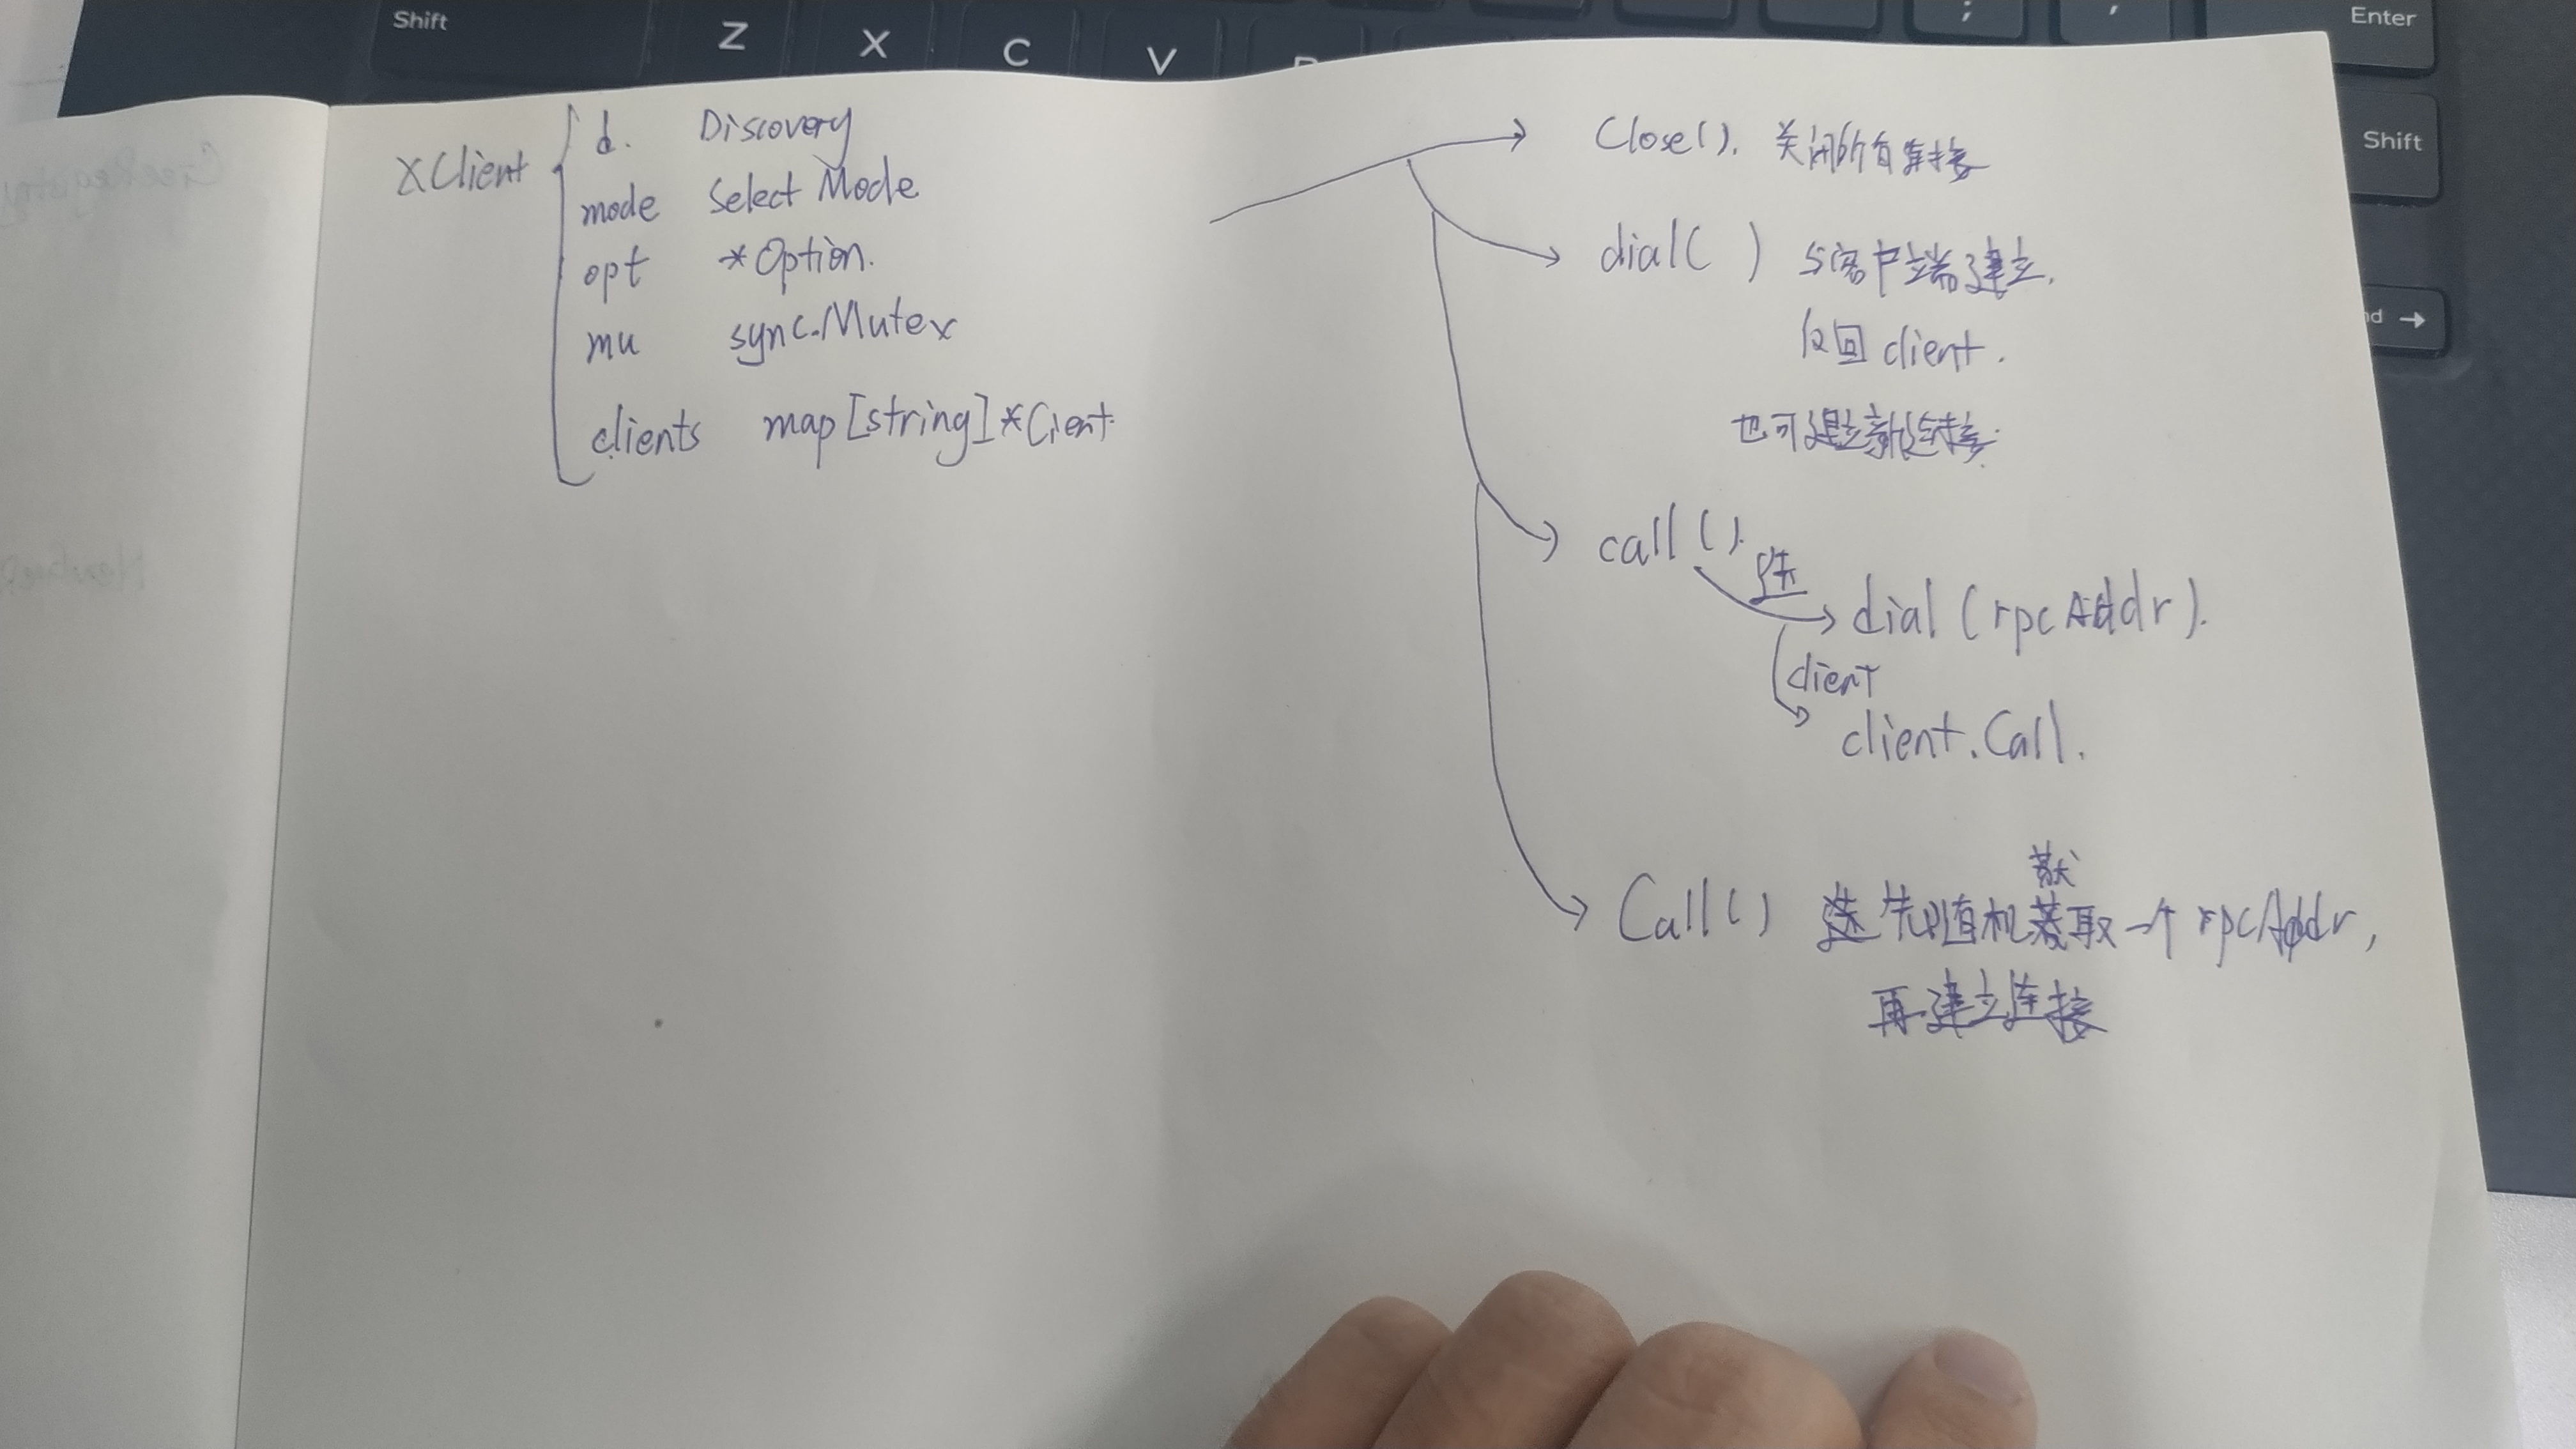 Shift Z X C V ; , Enter
Shift
nd →
XClient
d. Discovery
mode Select Mode
opt *Option.
mu sync.Mutex
clients map[string]*Cient
Close(). 关闭所有连接
dial( ) 与客户端建立.
返回 client.
也可建立新连接.
call().
先
dial (rpcAddr).
client
client.Call.
Call() 先随机获取一个 rpcAddr,
再建立连接